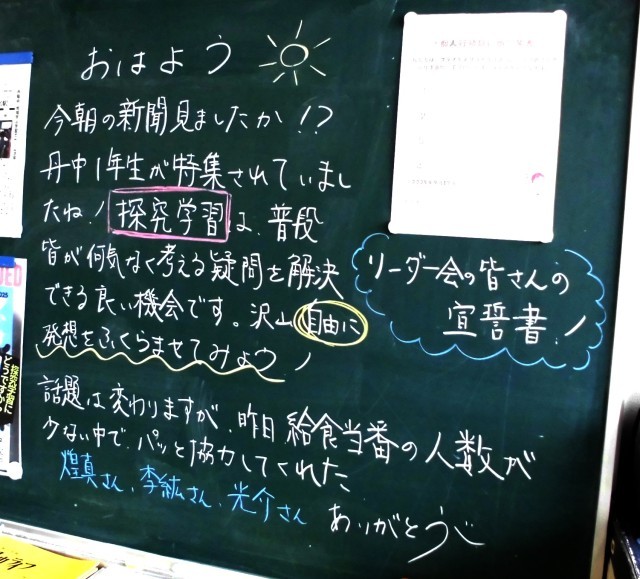 おはよう
今朝の新聞見ましたか!?
丹中1年生が特集されていまし
たね! 探究学習は、普段
皆が何気なく考える疑問を解決
できる良い機会です。沢山自由に
発想をふくらませてみよう!
リーダー会の皆さんの
宣誓書!
話題は変わりますが、昨日給食当番の人数が
少ない中で、パッと協力してくれた
煌真さん、李紘さん、光介さん ありがとう
探究学習に
どうですか
2025